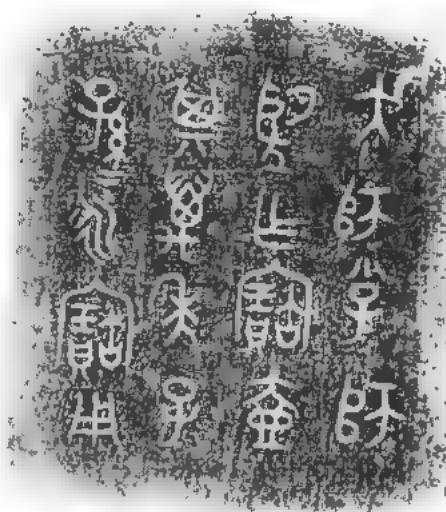 大師小子師
望乍寶壺
其萬年子
孫永寶用